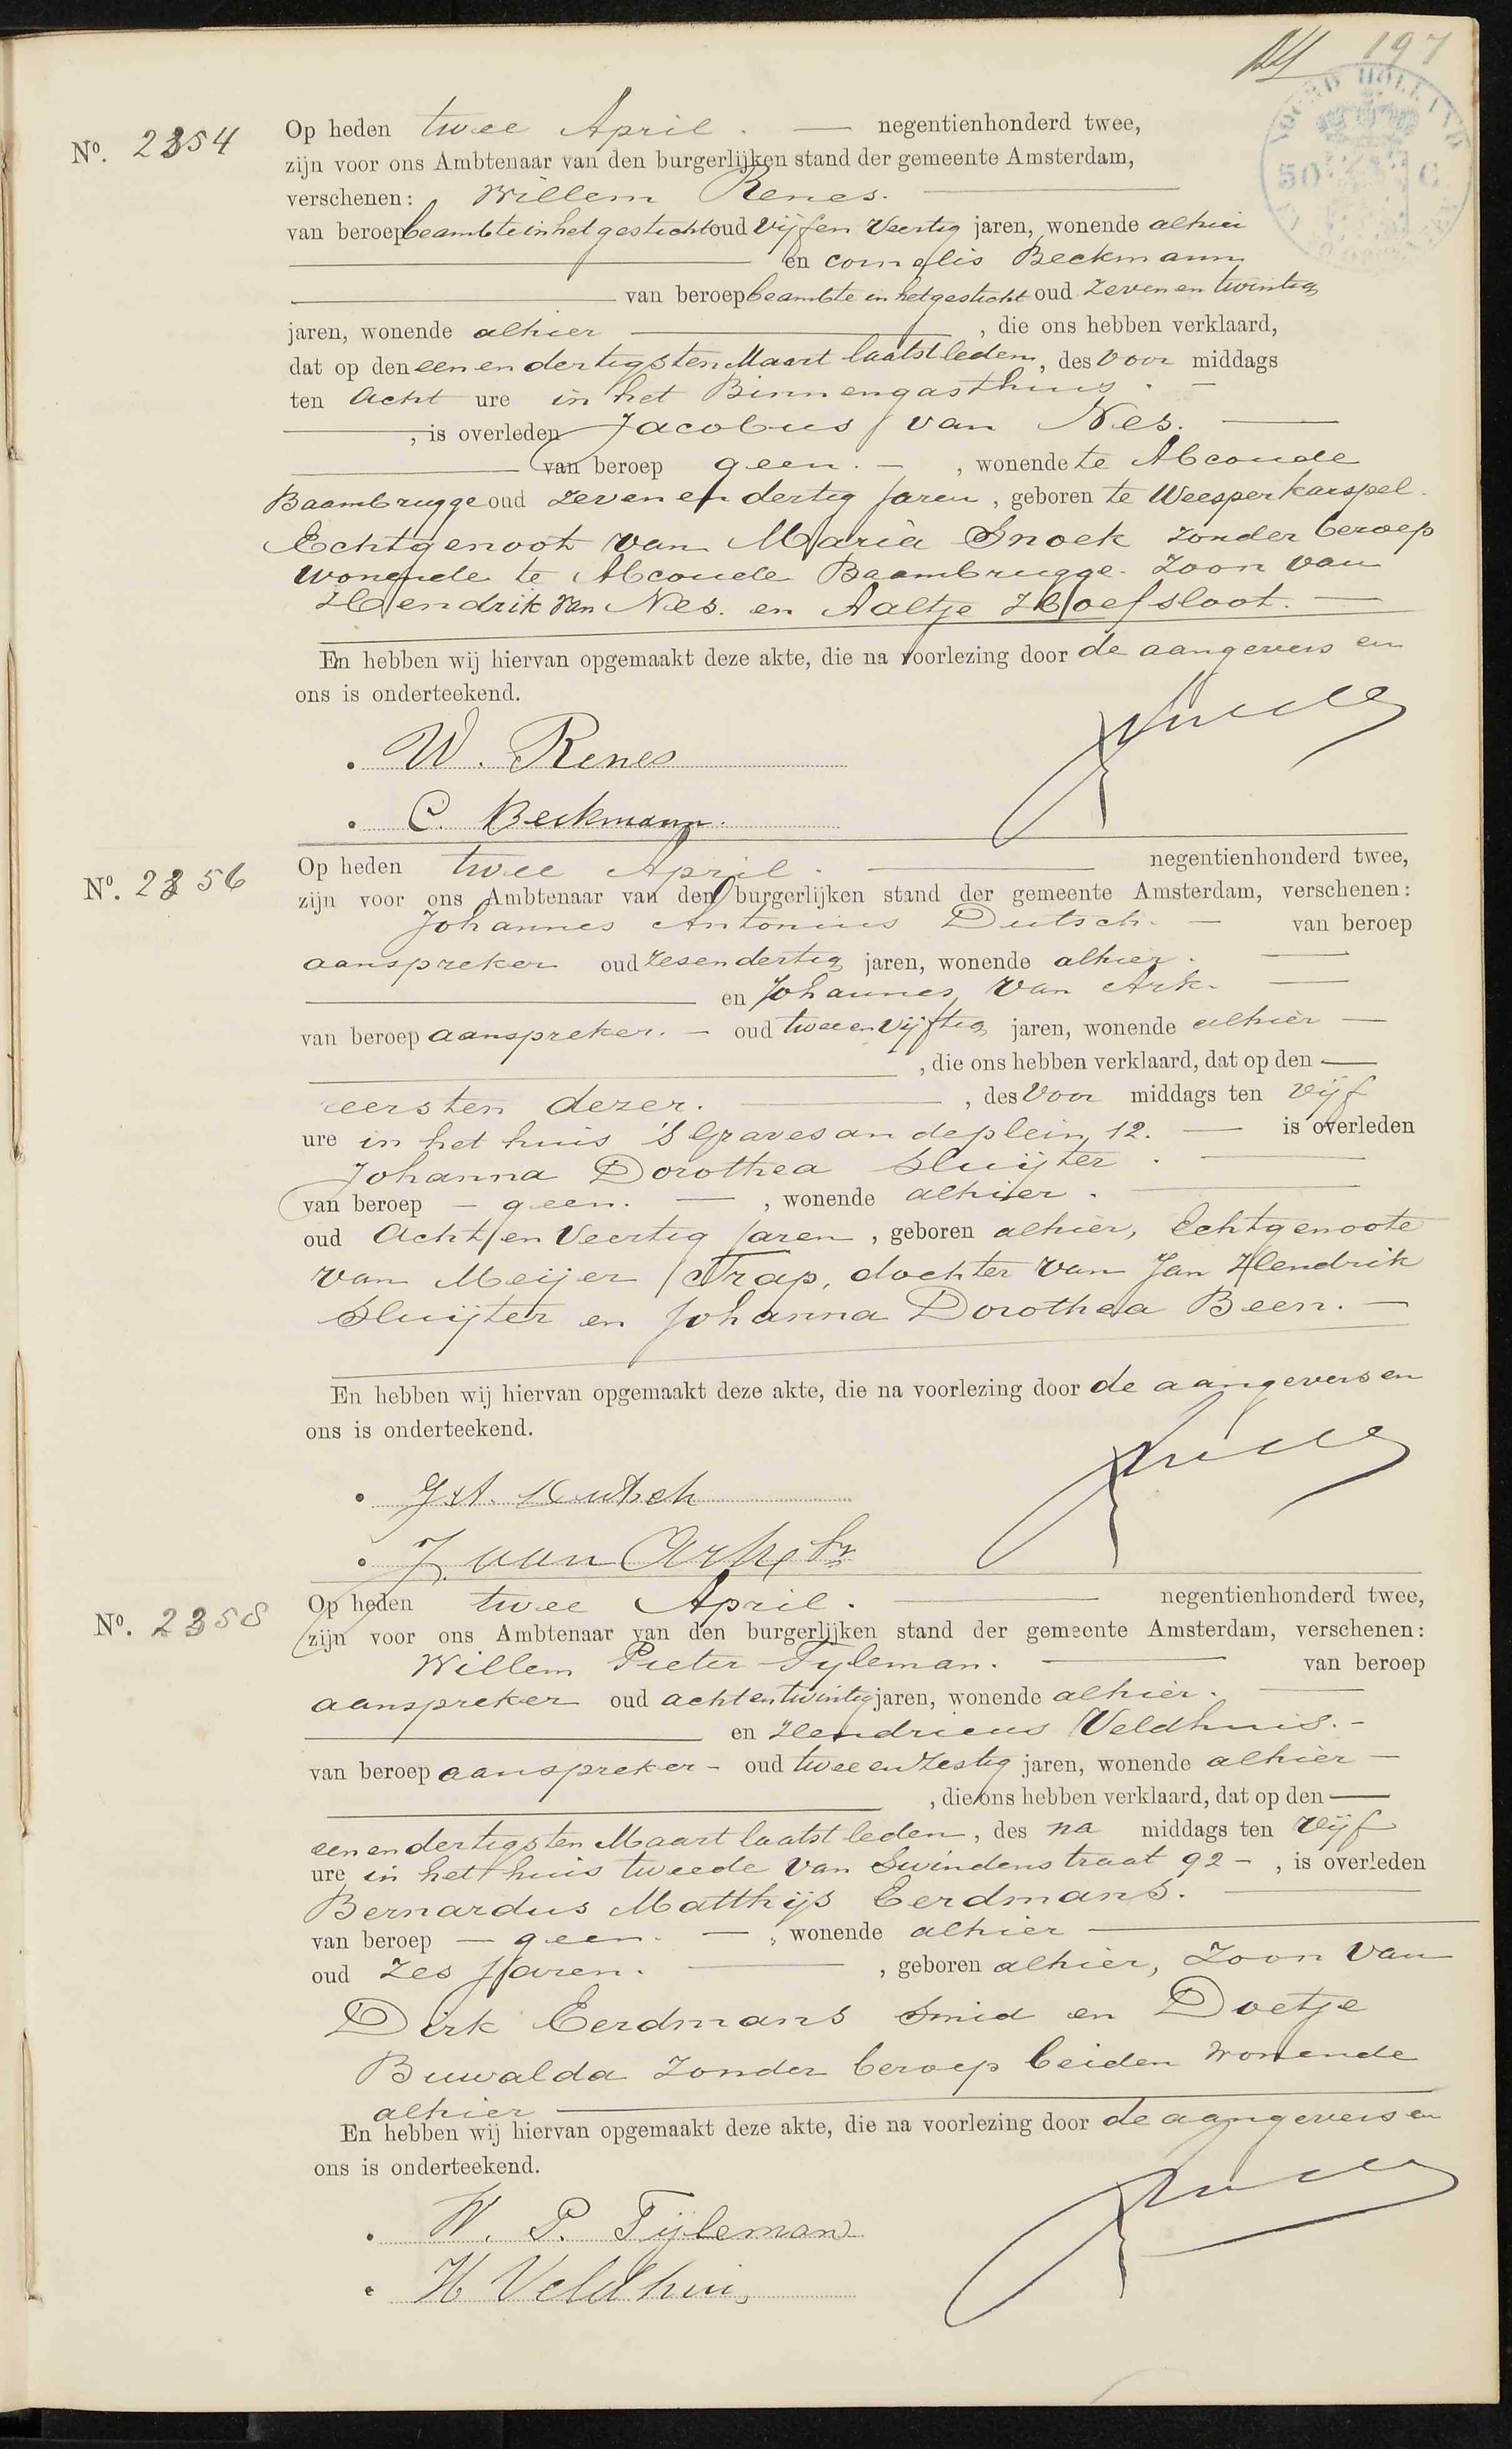 197
NOORD HOLLAND
50 C
No. 2354
Op heden twee April. — negentienhonderd twee,
zijn voor ons Ambtenaar van den burgerlijken stand der gemeente Amsterdam,
verschenen: Willem Renes.
van beroep beambte in het gesticht oud Vijf en Veertig jaren, wonende alhier
en Cornelis Beekmann
van beroep beambte in het gesticht oud Zeven en twintig
jaren, wonende alhier , die ons hebben verklaard,
dat op den een en dertigsten Maart laatstleden, des Voor middags
ten Acht ure in het Binnengasthuis. —
, is overleden Jacobus van Nes.
van beroep geen. — , wonende te Abcoude
Baambrugge oud Zeven en dertig jaren, geboren te Weesperkarspel.
Echtgenoot van Maria Snoek zonder beroep
wonende te Abcoude Baambrugge. Zoon van
Hendrik van Nes. en Aaltje Hoefsloot. —
En hebben wij hiervan opgemaakt deze akte, die na voorlezing door de aangevers en
ons is onderteekend.
W. Renes
C. Beekmann.
No. 2356
Op heden twee April. — negentienhonderd twee,
zijn voor ons Ambtenaar van den burgerlijken stand der gemeente Amsterdam, verschenen:
Johannes Antonius Dutsch. — van beroep
aanspreker oud Zes en dertig jaren, wonende alhier.
en Johannes van Ark.
van beroep aanspreker. — oud twee en Vijftig jaren, wonende alhier —
, die ons hebben verklaard, dat op den —
eersten dezer. , des Voor middags ten Vijf
ure in het huis 's Gravesandeplein 12. — is overleden
Johanna Dorothea Sluijter.
van beroep — geen. — , wonende alhier.
oud Acht en Veertig jaren, geboren alhier, Echtgenoote
van Meijer Trap, dochter van Jan Hendrik
Sluijter en Johanna Dorothea Been. —
En hebben wij hiervan opgemaakt deze akte, die na voorlezing door de aangevers en
ons is onderteekend.
J. van Ark Sr
No. 2358
Op heden twee April. — negentienhonderd twee,
zijn voor ons Ambtenaar van den burgerlijken stand der gemeente Amsterdam, verschenen:
Willem Pieter Tyleman. — van beroep
aanspreker oud acht en twintig jaren, wonende alhier.
en Hendricus Veldhuis. —
van beroep aanspreker — oud twee en Zestig jaren, wonende alhier —
, die ons hebben verklaard, dat op den —
een en dertigsten Maart laatstleden, des na middags ten Vijf
ure in het huis tweede van Swindenstraat 92 — , is overleden
Bernardus Matthijs Eerdmans.
van beroep — geen. — , wonende alhier
oud Zes jaren. , geboren alhier, Zoon van
Dirk Eerdmans Smid en Doetje
Buwalda Zonder beroep beiden wonende
alhier
En hebben wij hiervan opgemaakt deze akte, die na voorlezing door de aangevers en
ons is onderteekend.
W. P. Tijleman
H Veldhuis